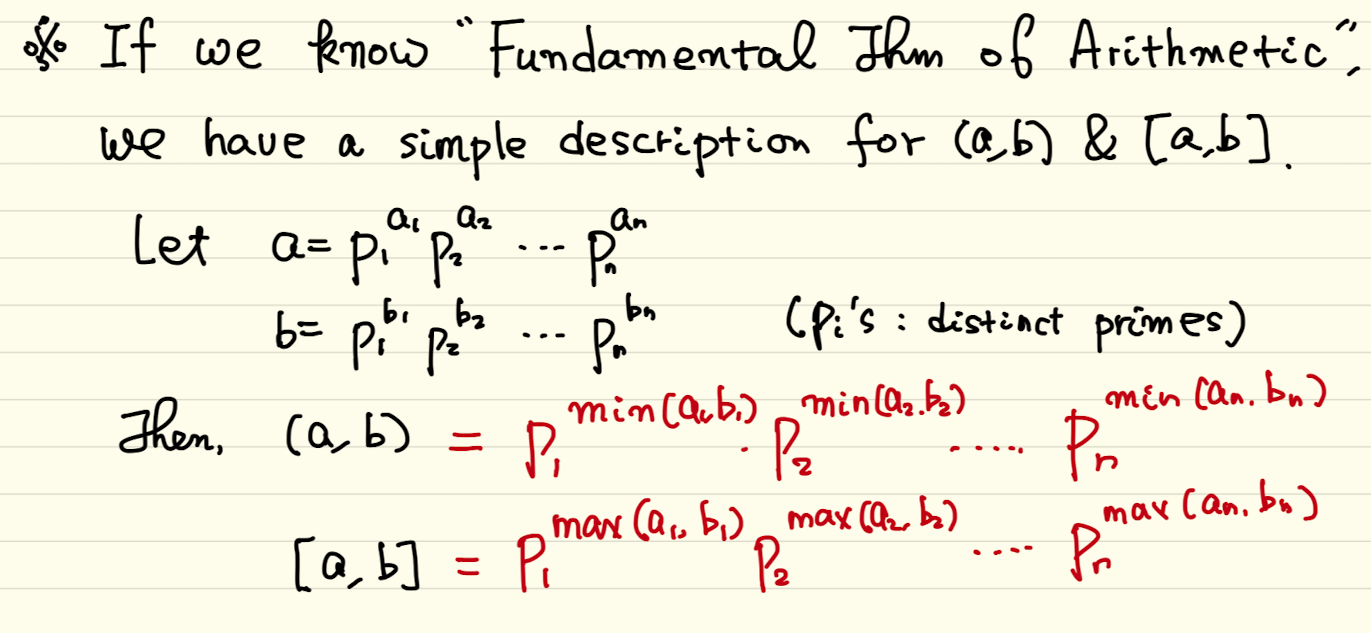 ※ If we know "Fundamental Thm of Arithmetic",
we have a simple description for (a,b) & [a,b].
Let a = p₁^a₁ p₂^a₂ ··· pₙ^aₙ
b = p₁^b₁ p₂^b₂ ··· pₙ^bₙ (pᵢ's : distinct primes)
Then, (a,b) = p₁^min(a₁,b₁) · p₂^min(a₂.b₂) ····· pₙ^min(aₙ.bₙ)
[a,b] = p₁^max(a₁,b₁) p₂^max(a₂,b₂) ···· pₙ^max(aₙ.bₙ)